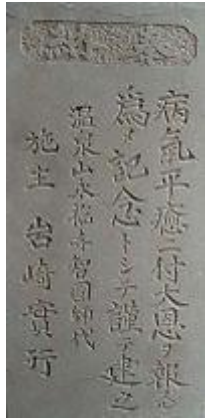 病氣平癒ニ付大恩ヲ報ズ
為メ記念トシテ謹テ建之
温泉山永福寺智圓師代
施主 岩崎實行